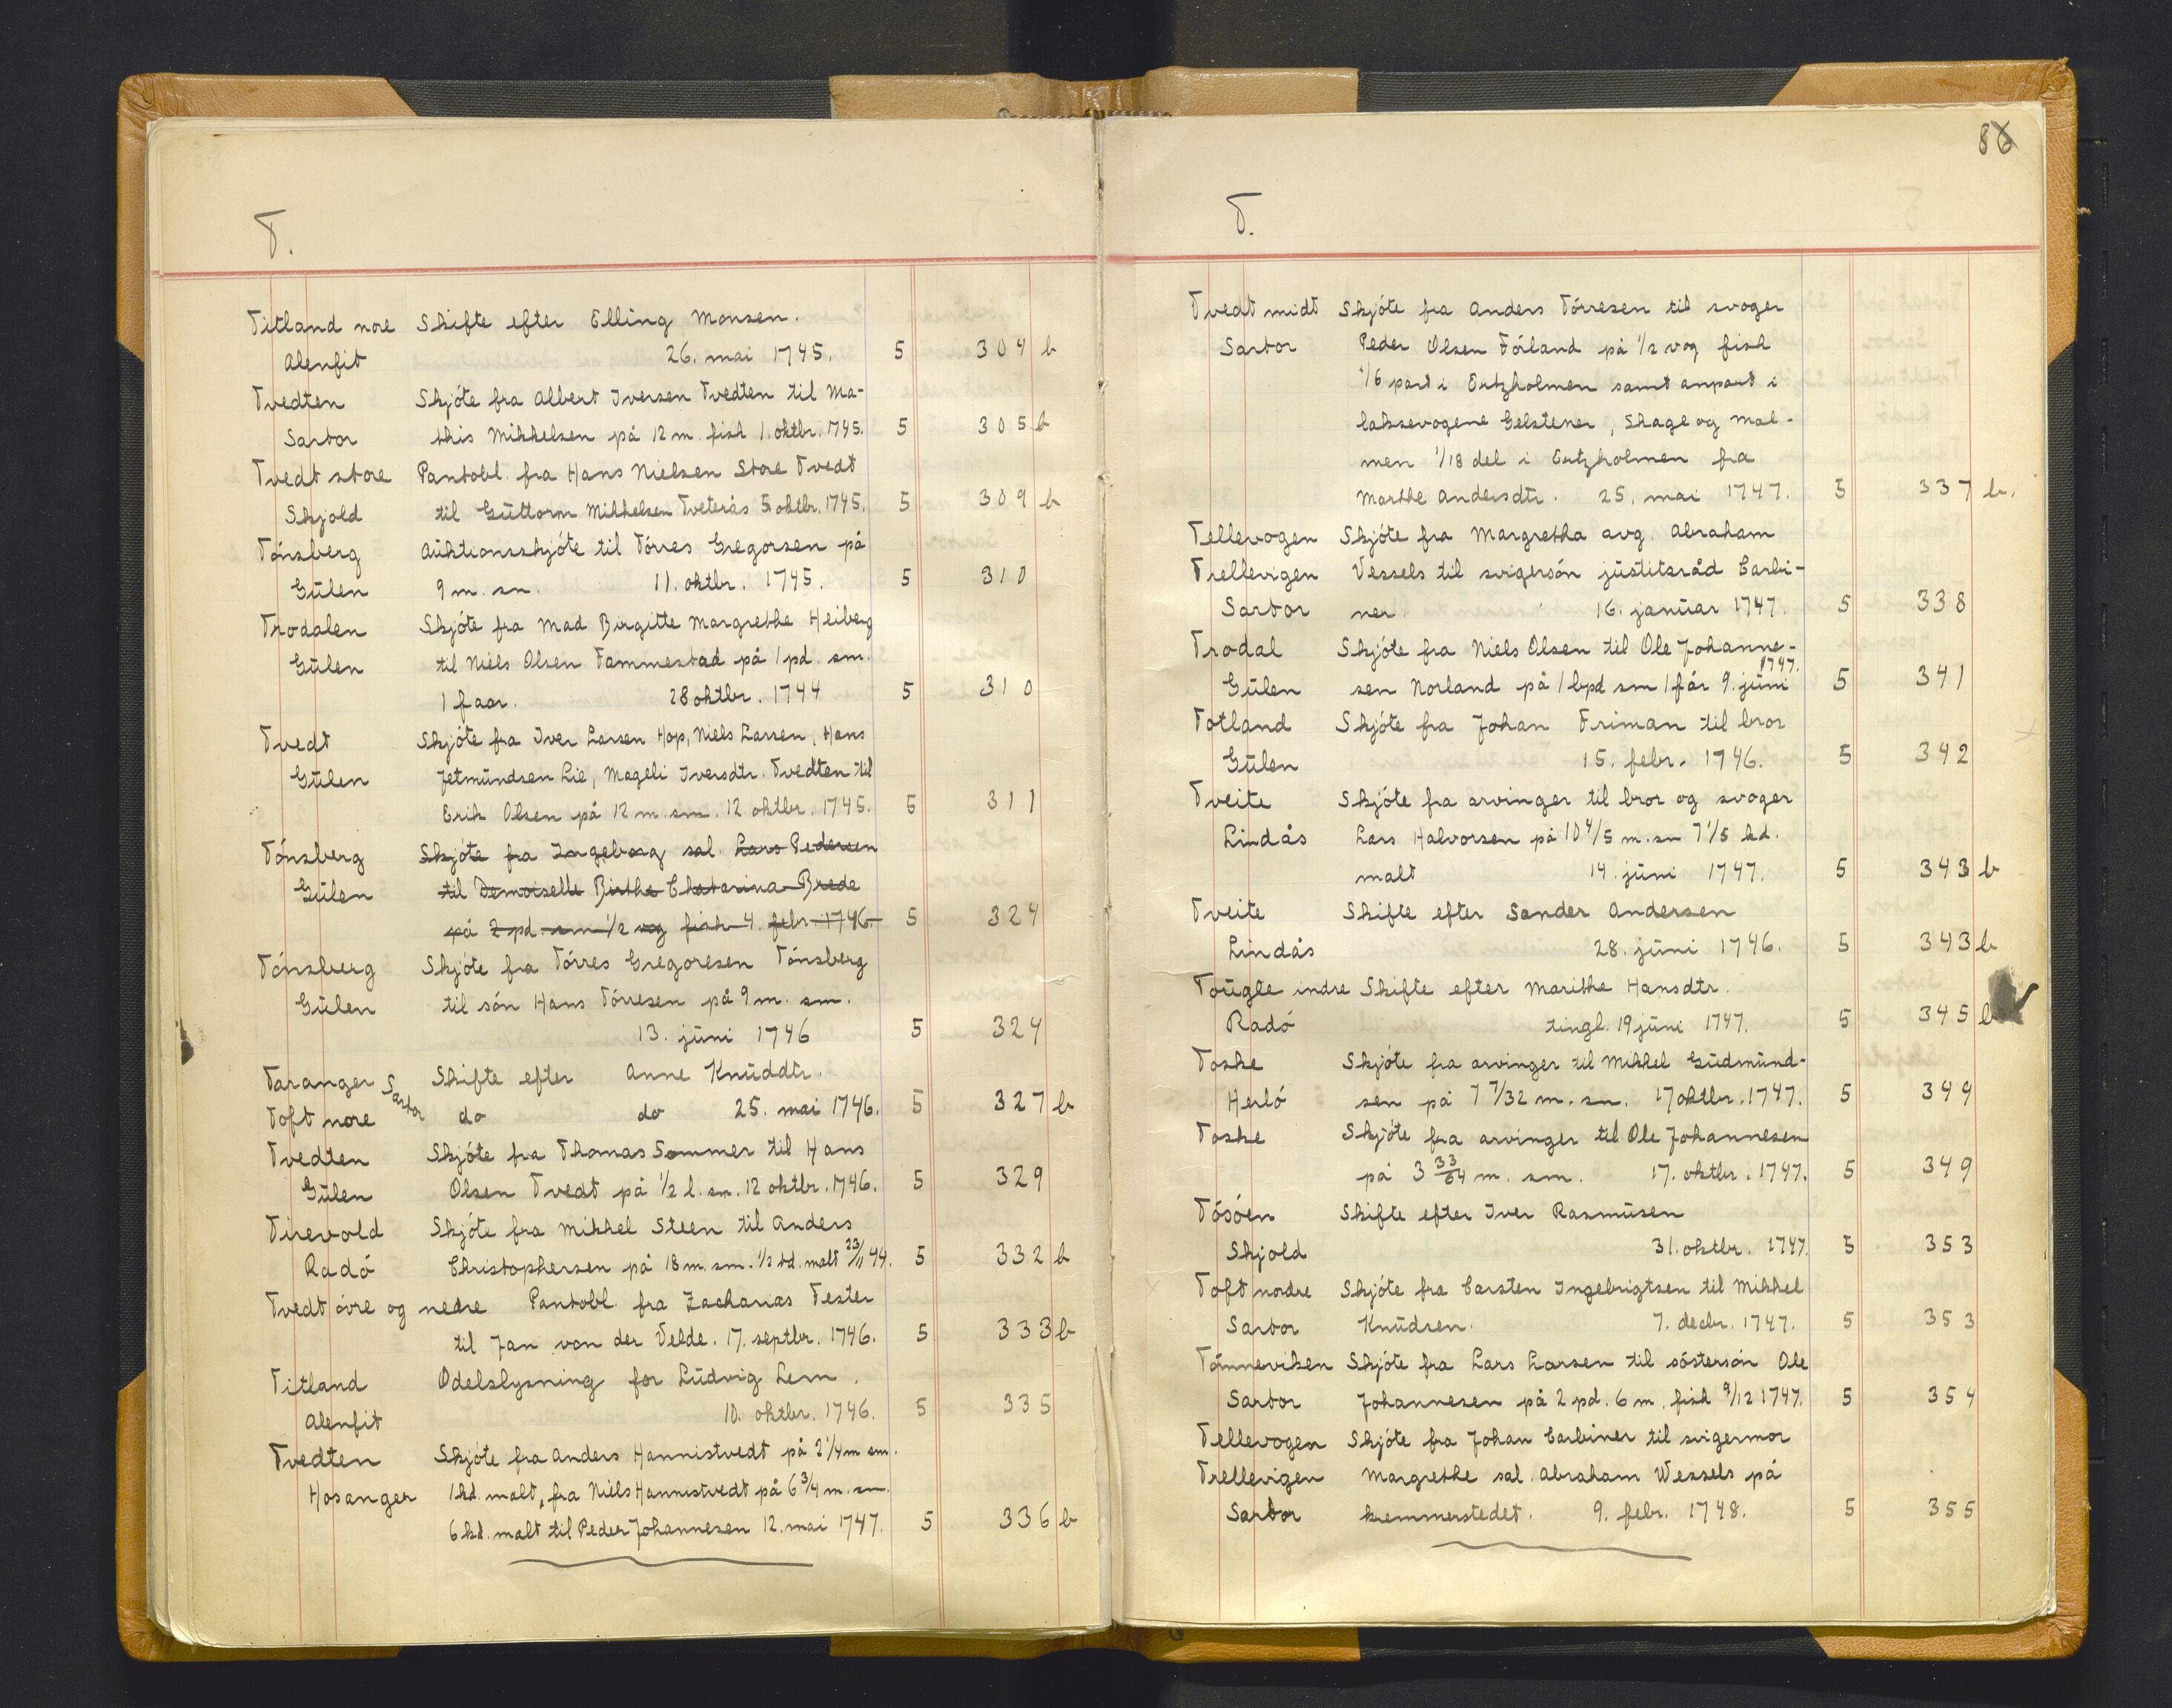 T.
Titland nore Skifte efter Elling Monsen.
Alenfit 26. mai 1745. 5 304 b
Tvedten Skjóte fra Albert Iversen Tvedten til Ma-
Sartor this Mikkelsen på 12 m. fisk 1. oktbr. 1745. 5 305 b
Tvedt store Pantobl. fra Hans Nielsen Store Tvedt
Skjold til Guttorm Mikkelsen Tveterås 5 oktbr. 1745. 5 309 b
Tónsberg Auktionsskjóte til Tórres Gregorsen på
Gulen 9 m. sm. 11. oktbr. 1745. 5 310
Trodalen Skjóte fra Mad Birgitte Margrethe Heiberg
Gulen til Niels Olsen Tammestad på 1 pd. sm.
1 faar. 28 oktbr. 1744 5 310
Tvedt Skjóte fra Iver Larsen Hop, Niels Larsen, Hans
Gulen Jetmundsen Lie, Mageli Iversdtr. Tvedten til
Erik Olsen på 12 m. sm. 12. oktbr. 1745. 5 311
Tónsberg Skjóte fra Ingeborg sal. Lars Pedersen
Gulen til Demoiselle Birthe Chatarina Brede
på 2 pd. sm 1/2 vog fisk 4. febr. 1746. 5 324
Tónsberg Skjóte fra Tórres Gregoresen Tónsberg
Gulen til són Hans Tórresen på 9 m. sm.
13. juni 1746 5 324
Taranger Sartor Skifte efter Anne Knuddtr.
Toft nore do do 25. mai 1746. 5 327 b
Tvedten Skjóte fra Thomas Sommer til Hans
Gulen Olsen Tvedt på 1/2 l. sm. 12 oktbr. 1746. 5 329
Tirevold Skjóte fra Mikkel Steen til Anders
Radó Christophersen på 18 m. sm. 1/2 td. malt 23/11 44. 5 332 b
Tvedt óvre og nedre Pantobl. fra Zacharias Tester
til Jan von der Velde. 17. septbr. 1746. 5 333 b
Titland Odelslysning for Ludvig Lem.
Alenfit 10. oktbr. 1746. 5 335
Tvedten Skjóte fra Anders Hannistvedt på 2 1/4 m sm.
Hosanger 1 kd. malt, fra Niels Hannistvedt på 6 3/4 m. sm.
6 kd. malt til Peder Johannesen 12. mai 1747. 5 336 b
86
T.
Tvedt midt Skjóte fra Anders Tórresen til svoger
Sartor Peder Olsen Fórland på 1/2 vog fisk
1/6 part i Ertzholmen samt anpart i
laksevogene Gelstener, Skage og Mal-
men 1/18 del i Ertzholmen fra
Marthe Andersdtr. 25. mai 1747. 5 337 b.
Tellevogen Skjóte fra Margretha avg. Abraham
Trellevigen Vessels til svigersón justitsråd Carbi-
Sartor ner. 16. januar 1747. 5 338
Trodal Skjóte fra Niels Olsen til Ole Johanne-
Gulen sen Norland på 1 bpd sm 1 får 9. juni 1747. 5 341
Totland Skjóte fra Johan Friman til bror
Gulen 15. febr. 1746. 5 342
Tveite Skjóte fra arvinger til bror og svoger
Lindås Lars Halvorsen på 10 4/5 m. sm 7 1/5 kd.
malt 14. juni 1747. 5 343 b
Tveite Skifte efter Sander Andersen
Lindås 28. juni 1746. 5 343 b
Tougle indre Skifte efter Marithe Hansdtr.
Radó tingl. 19 juni 1747. 5 345 b
Toske Skjóte fra arvinger til Mikkel Gudmund-
Herló sen på 7 7/32 m. sm. 17 oktbr. 1747. 5 349
Toske Skjóte fra arvinger til Ole Johannesen
på 3 33/64 m. sm. 17. oktbr. 1747. 5 349
Tósóen Skifte efter Iver Rasmusen
Skjold 31. oktbr. 1747. 5 353
Toft nordre Skjóte fra Carsten Ingebrigtsen til Mikkel
Sartor Knudsen. 7. decbr. 1747. 5 353
Tónneviken Skjóte fra Lars Larsen til sóstersón Ole
Sartor Johannesen på 2 pd. 6 m. fisk 9/12 1747. 5 354
Tellevogen Skjóte fra Johan Carbiner til svigermor
Trellevigen Margrethe sal. Abraham Wessels på
Sartor kremmerstedet. 9. febr. 1748. 5 355